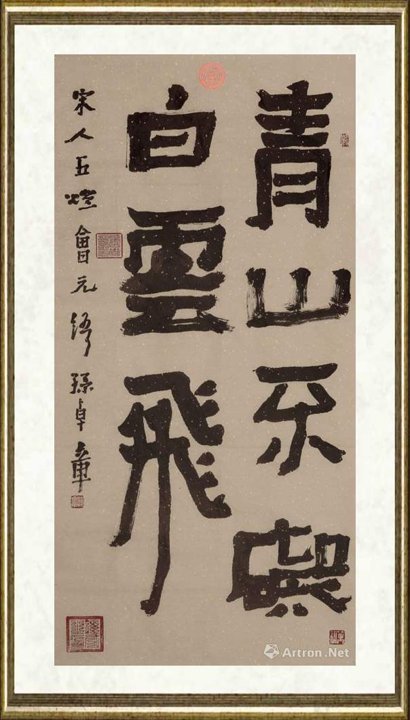 青山不碍
白雲飛
宋人五燈會元 孫卓章
Artron.Net